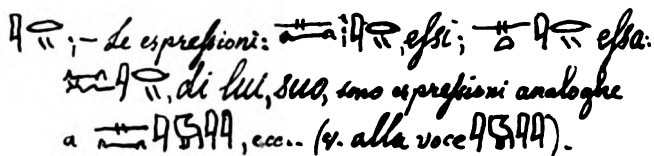 𓇋𓂋𓏭 ; – Le espreſsioni: 𓇋𓂋𓏭, eſsi; 𓇋𓂋𓏭 eſsa:
𓇋𓂋𓏭, di lui, suo, sono espreſsioni analoghe
a , ecc.. (v. alla voce ).